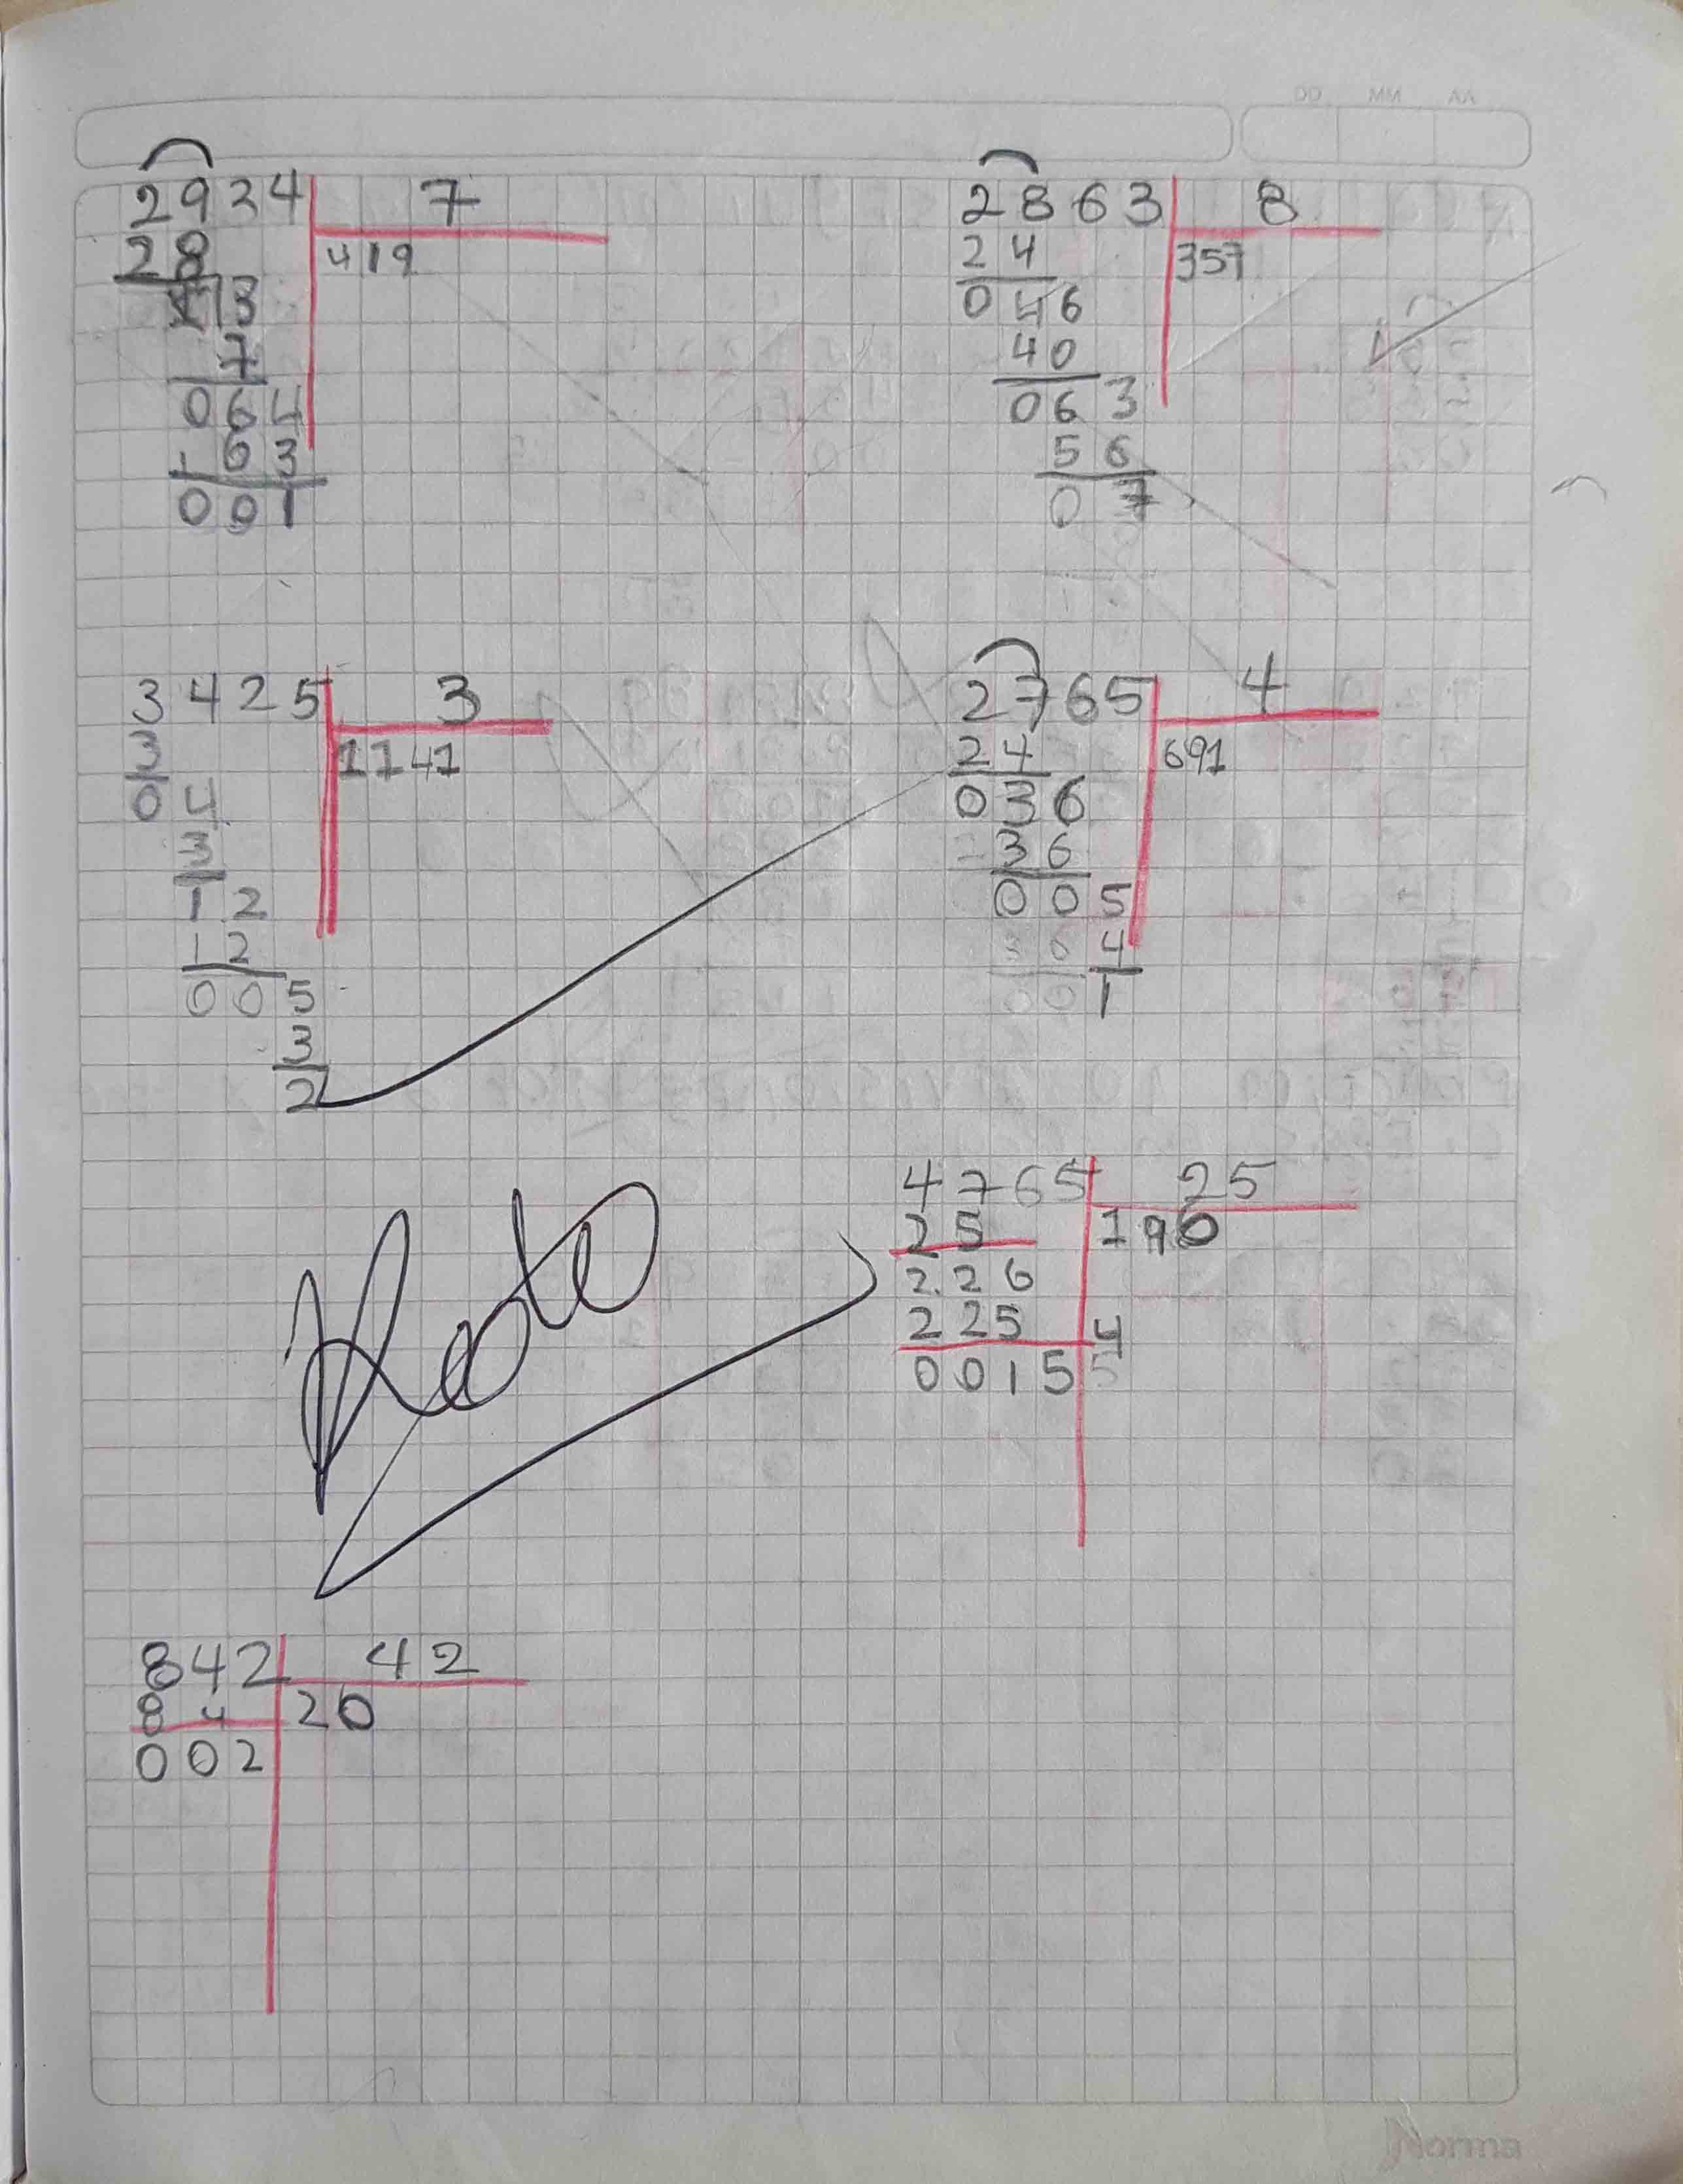 DD MM AA
2934 7
28 419
13
7
064
- 63
001
2863 8
24 357
046
40
063
56
07
3425 3
3 1141
04
3
12
12
005
3
2
2765 4
24 691
036
- 36
005
4
001
4765 25
25 190
226
225 4
0015 5
842 42
84 20
002
Norma